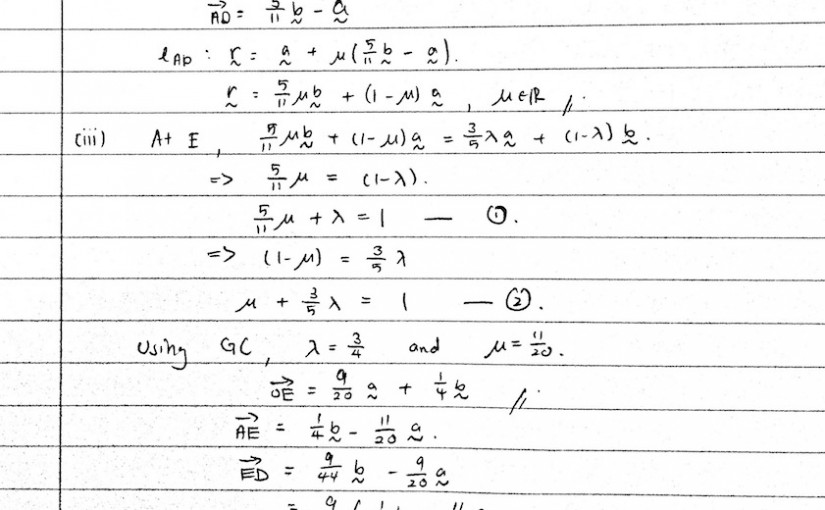 AD⃗ = 5/11 b̰ - a̰
l_AD : r̰ = a̰ + μ(5/11 b̰ - a̰).
r̰ = 5/11 μb̰ + (1-μ) a̰ , μ∈ℝ //.
(iii) At E , 5/11 μb̰ + (1-μ) a̰ = 3/5 λa̰ + (1-λ) b̰ .
=> 5/11 μ = (1-λ).
5/11 μ + λ = 1 — ①.
=> (1-μ) = 3/5 λ
μ + 3/5 λ = 1 — ②.
Using GC, λ = 3/4 and μ = 11/20 .
OE⃗ = 9/20 a̰ + 1/4 b̰ //.
AE⃗ = 1/4 b̰ - 11/20 a̰ .
ED⃗ = 9/44 b̰ - 9/20 a̰
= 9 (